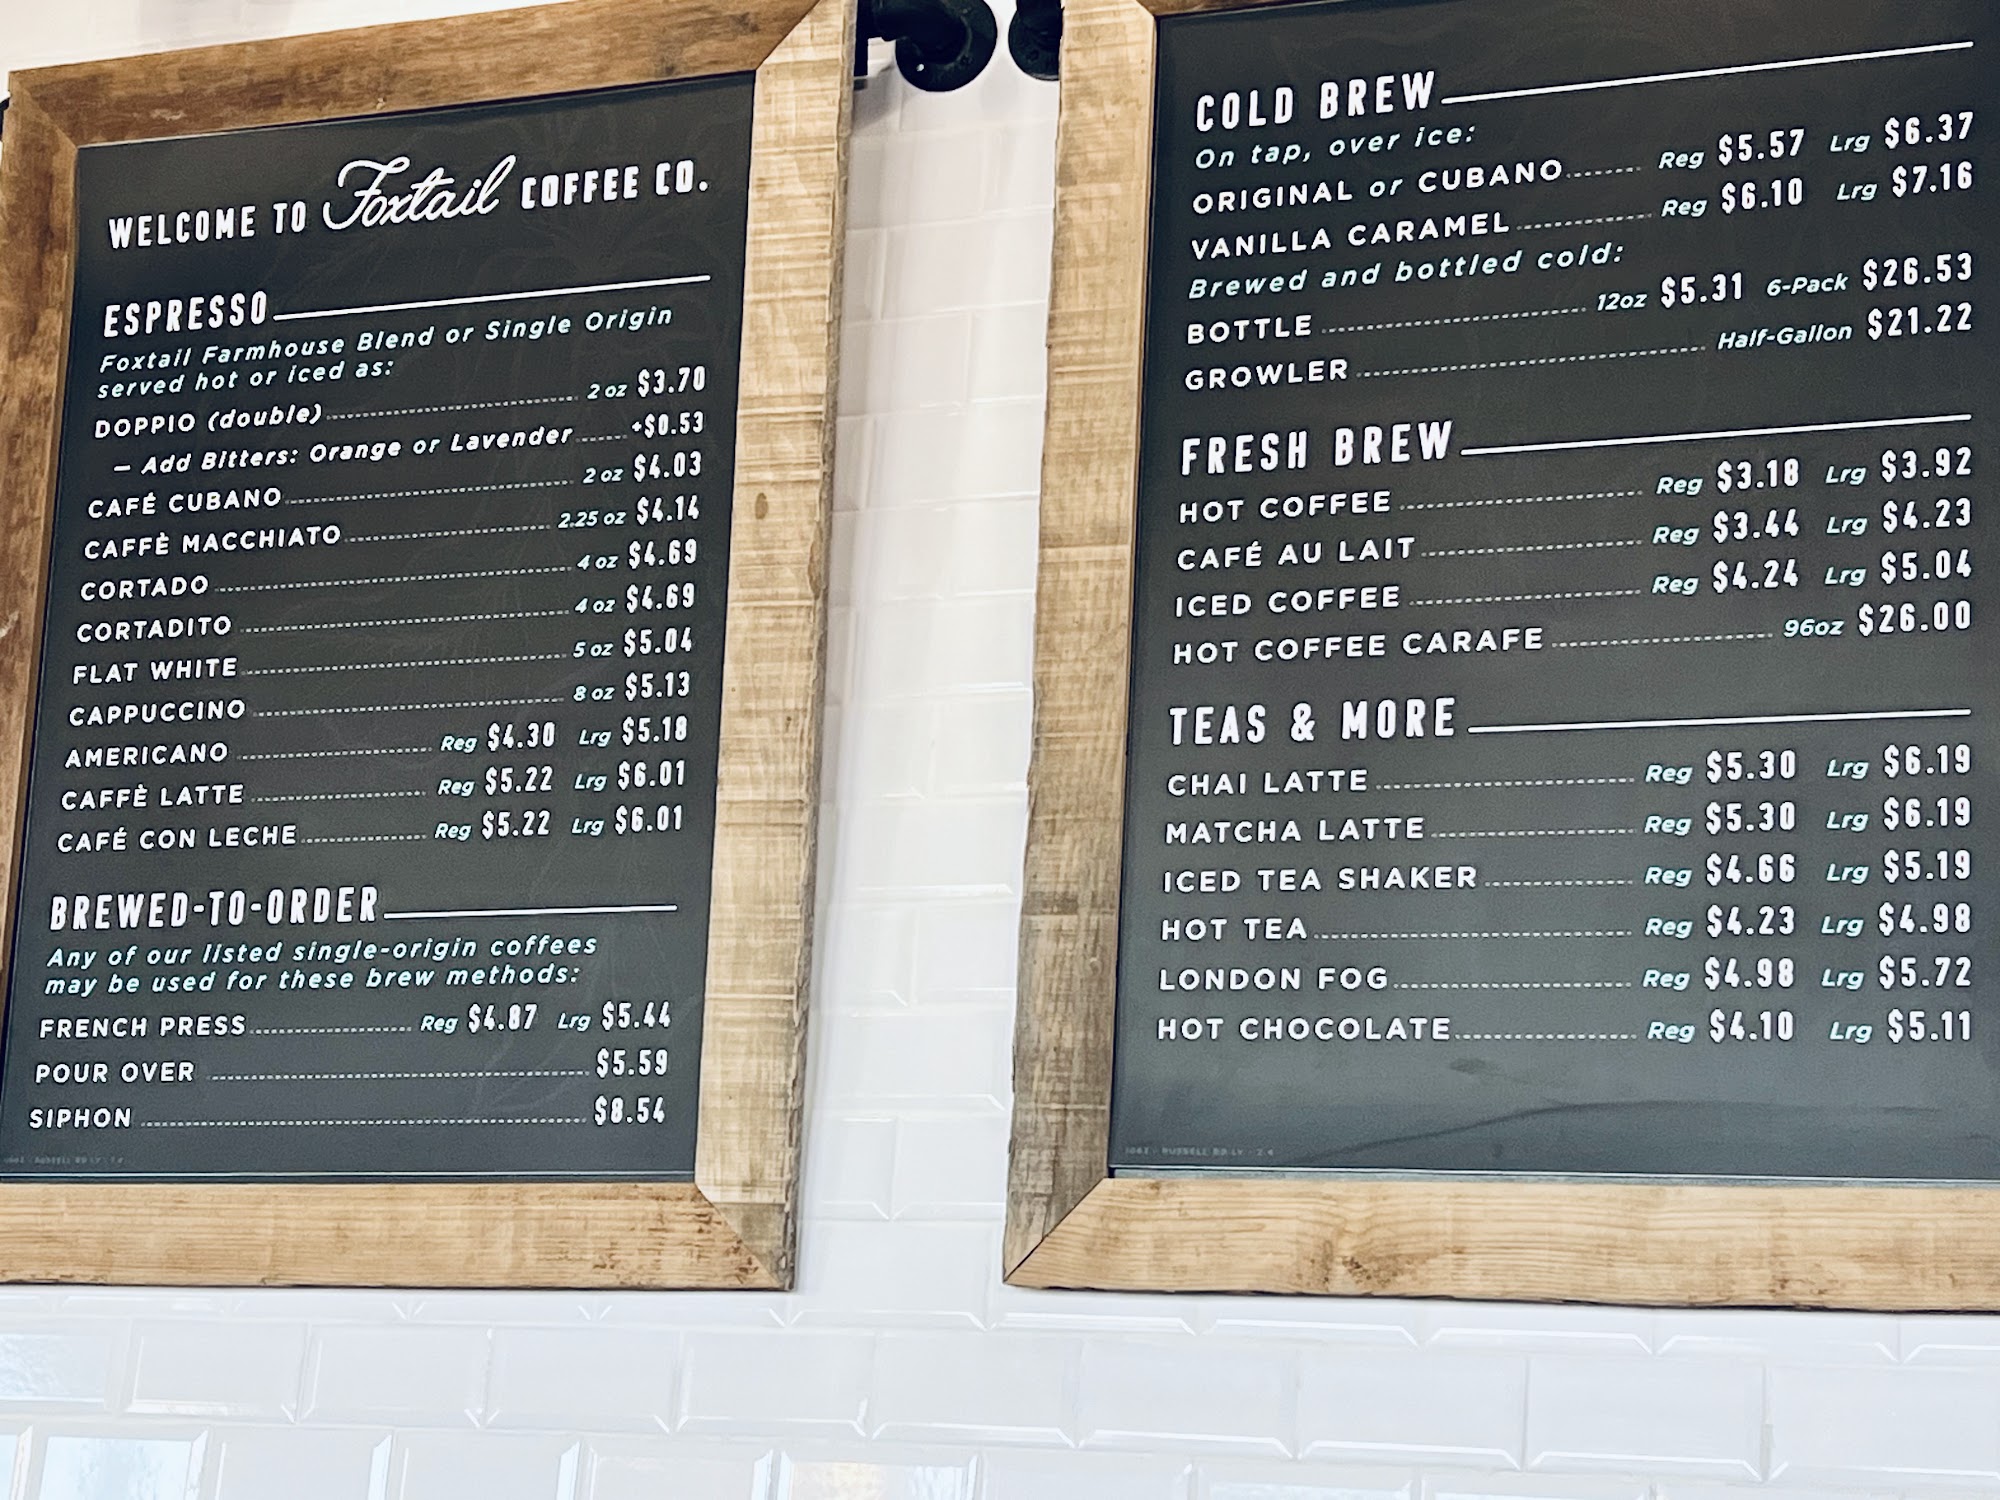 WELCOME TO Foxtail COFFEE CO.
ESPRESSO
Foxtail Farmhouse Blend or Single Origin
served hot or iced as:
DOPPIO (double) 2 oz $3.70
– Add Bitters: Orange or Lavender +$0.53
CAFÉ CUBANO 2 oz $4.03
CAFFÈ MACCHIATO 2.25 oz $4.14
CORTADO 4 oz $4.69
CORTADITO 4 oz $4.69
FLAT WHITE 5 oz $5.04
CAPPUCCINO 8 oz $5.13
AMERICANO Reg $4.30 Lrg $5.18
CAFFÈ LATTE Reg $5.22 Lrg $6.01
CAFÉ CON LECHE Reg $5.22 Lrg $6.01
BREWED-TO-ORDER
Any of our listed single-origin coffees
may be used for these brew methods:
FRENCH PRESS Reg $4.87 Lrg $5.44
POUR OVER $5.59
SIPHON $8.54
COLD BREW
On tap, over ice:
ORIGINAL or CUBANO Reg $5.57 Lrg $6.37
VANILLA CARAMEL Reg $6.10 Lrg $7.16
Brewed and bottled cold:
BOTTLE 12oz $5.31 6-Pack $26.53
GROWLER Half-Gallon $21.22
FRESH BREW
HOT COFFEE Reg $3.18 Lrg $3.92
CAFÉ AU LAIT Reg $3.44 Lrg $4.23
ICED COFFEE Reg $4.24 Lrg $5.04
HOT COFFEE CARAFE 96oz $26.00
TEAS & MORE
CHAI LATTE Reg $5.30 Lrg $6.19
MATCHA LATTE Reg $5.30 Lrg $6.19
ICED TEA SHAKER Reg $4.66 Lrg $5.19
HOT TEA Reg $4.23 Lrg $4.98
LONDON FOG Reg $4.98 Lrg $5.72
HOT CHOCOLATE Reg $4.10 Lrg $5.11